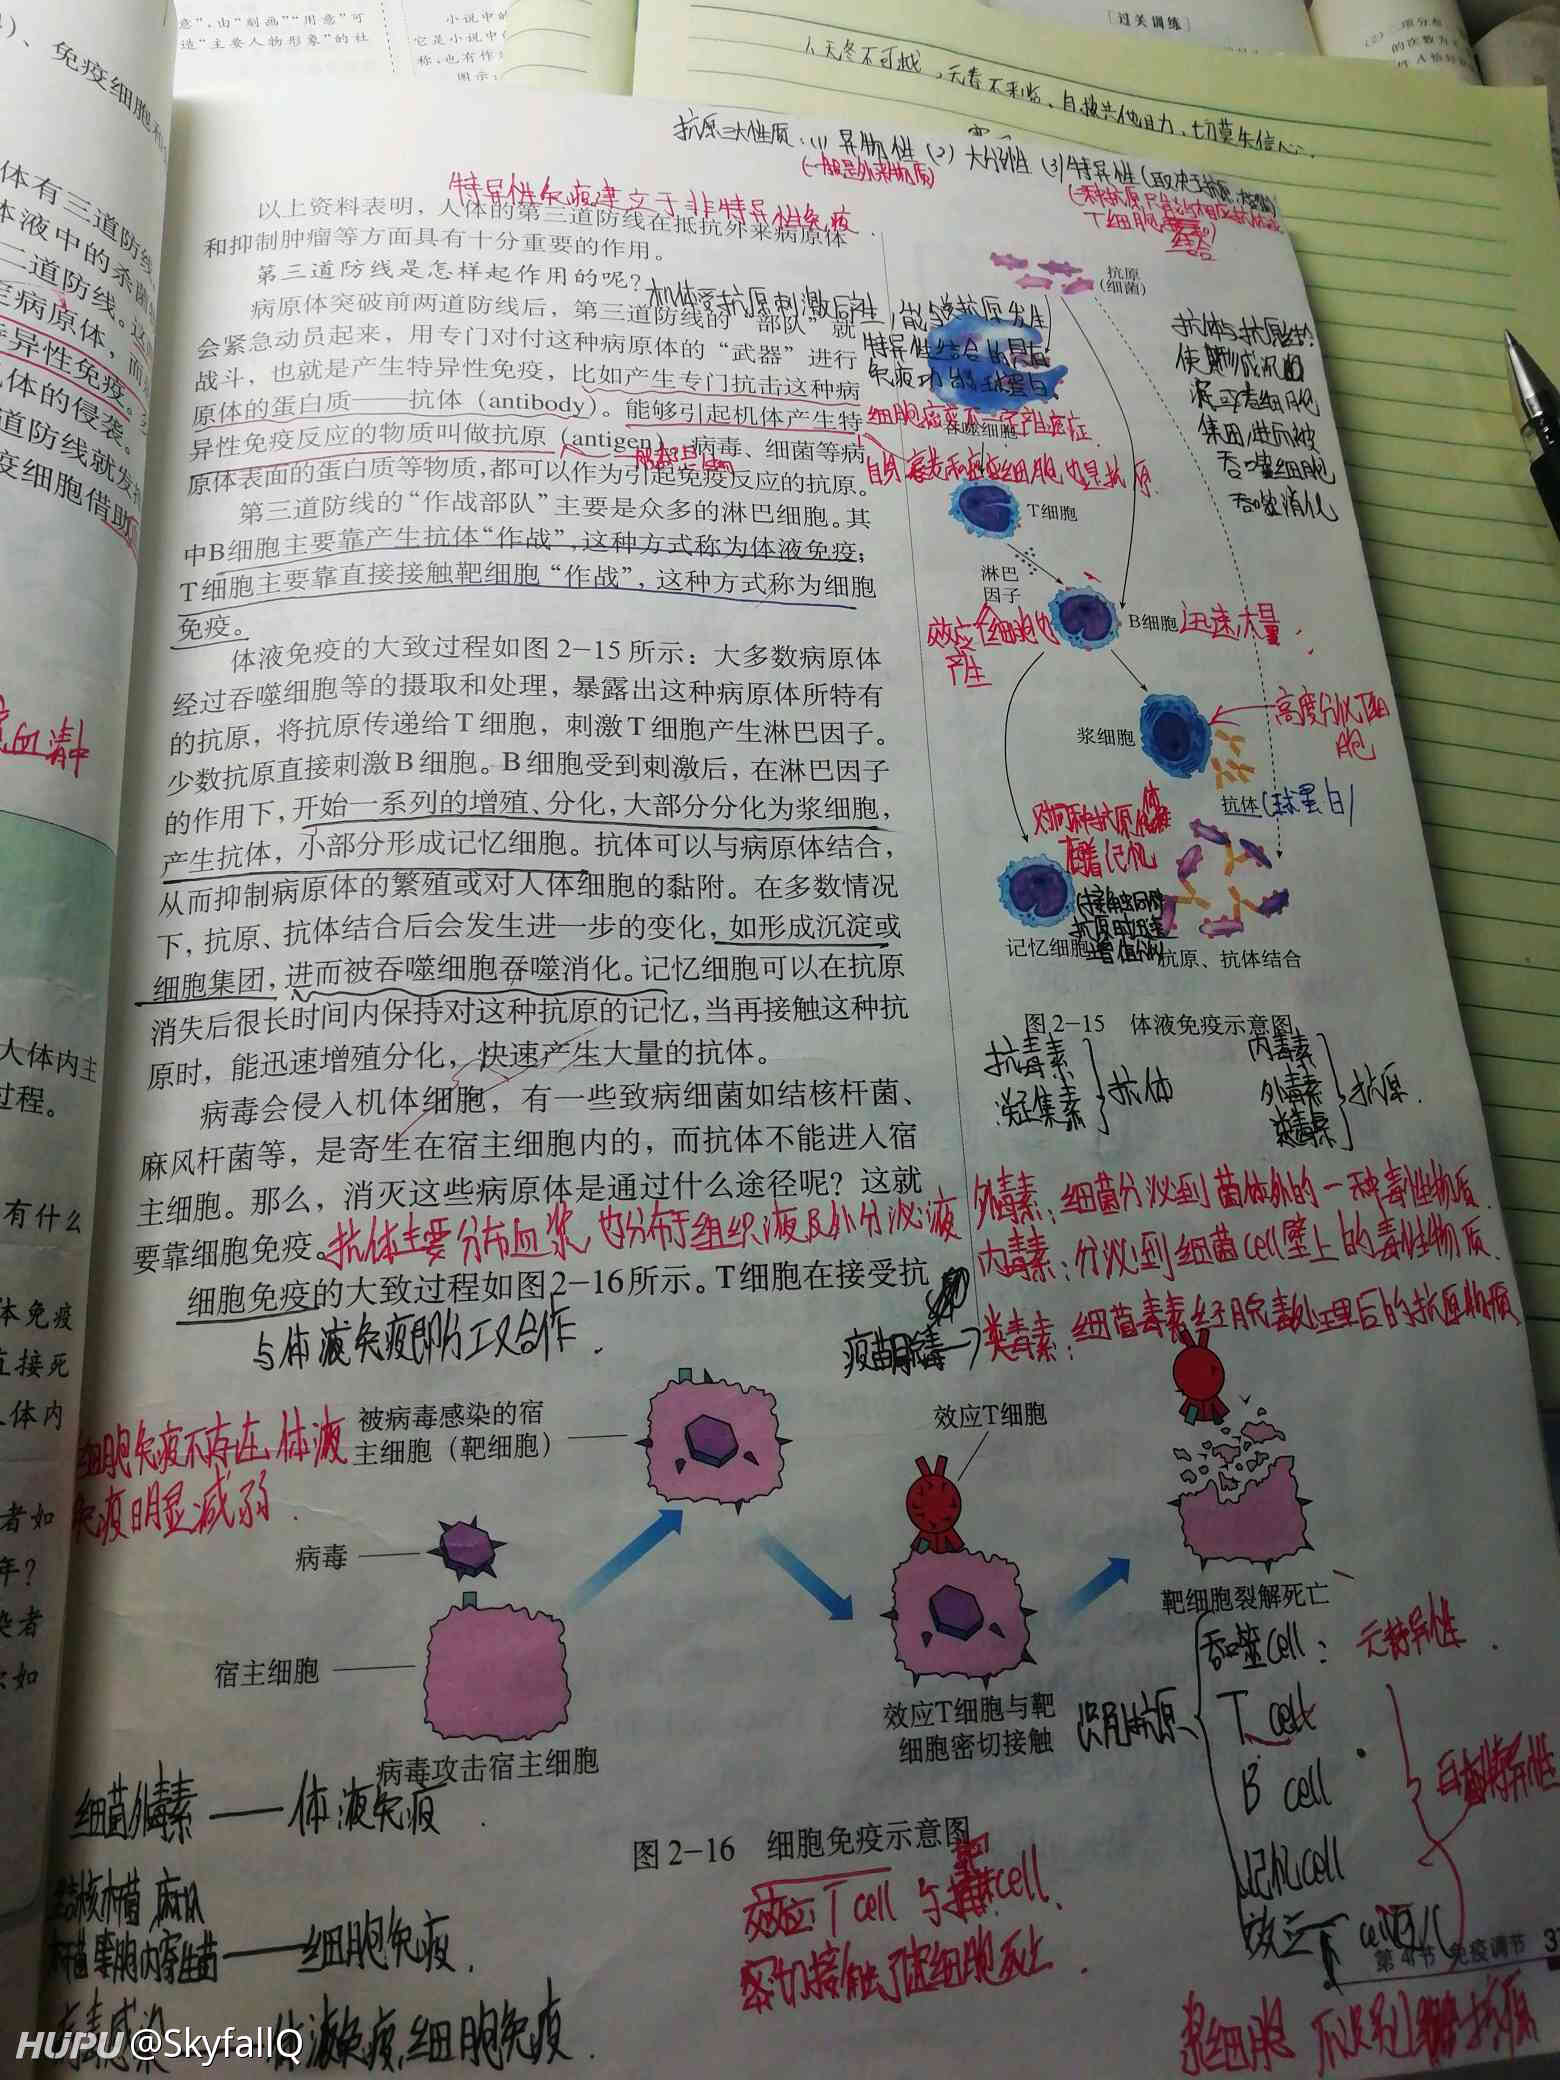 意”,由“刻画”“用意”可
造“主要人物形象”的社
小说中的
它是小说中
称,也有作
图示:
[过关训练]
(2)二项分布
的次数为
、免疫细胞和
体有三道防线
体液中的杀菌
二道防线。这
定病原体,而
特异性免疫。
机体的侵袭。
道防线就发挥
疫细胞借助
血清中
人体内主
过程。
有什么
体免疫
直接死
人体内
者如
年?
染者
如
无冬不可越,无春不来临,自救共他助力,切莫失信心。
抗原三大性质:(1)异物性(2)大分子性(3)特异性
(一般是外来物质)
特异性免疫建立于非特异性免疫
以上资料表明,人体的第三道防线在抵抗外来病原体
和抑制肿瘤等方面具有十分重要的作用。
第三道防线是怎样起作用的呢?
机体受抗原刺激后产生,能与该抗原发生
特异性结合的具有
免疫功能的球蛋白
病原体突破前两道防线后,第三道防线的“部队”就
会紧急动员起来,用专门对付这种病原体的“武器”进行
战斗,也就是产生特异性免疫,比如产生专门抗击这种病
原体的蛋白质——抗体(antibody)。能够引起机体产生特
异性免疫反应的物质叫做抗原(antigen)。病毒、细菌等病
原体表面的蛋白质等物质,都可以作为引起免疫反应的抗原。
第三道防线的“作战部队”主要是众多的淋巴细胞。其
中B细胞主要靠产生抗体“作战”,这种方式称为体液免疫;
T细胞主要靠直接接触靶细胞“作战”,这种方式称为细胞
免疫。
体液免疫的大致过程如图2-15所示:大多数病原体
经过吞噬细胞等的摄取和处理,暴露出这种病原体所特有
的抗原,将抗原传递给T细胞,刺激T细胞产生淋巴因子。
少数抗原直接刺激B细胞。B细胞受到刺激后,在淋巴因子
的作用下,开始一系列的增殖、分化,大部分分化为浆细胞,
产生抗体,小部分形成记忆细胞。抗体可以与病原体结合,
从而抑制病原体的繁殖或对人体细胞的黏附。在多数情况
下,抗原、抗体结合后会发生进一步的变化,如形成沉淀或
细胞集团,进而被吞噬细胞吞噬消化。记忆细胞可以在抗原
消失后很长时间内保持对这种抗原的记忆,当再接触这种抗
原时,能迅速增殖分化,快速产生大量的抗体。
病毒会侵入机体细胞,有一些致病细菌如结核杆菌、
麻风杆菌等,是寄生在宿主细胞内的,而抗体不能进入宿
主细胞。那么,消灭这些病原体是通过什么途径呢?这就
要靠细胞免疫。
抗体主要分布血浆,也分布于组织液及外分泌液
细胞免疫的大致过程如图2-16所示。T细胞在接受抗
与体液免疫即分工又合作.
抗原
(细菌)
抗体与抗原结合
使形成沉
淀或者细胞
集团,进而被
吞噬细胞
吞噬消化
细胞癌变不一定产自癌症.
吞噬细胞
自身衰老和癌变细胞也是抗原.
T细胞
淋巴
因子
B细胞
迅速,大量
效应T细胞也
产生
浆细胞
高度分化T细
胞
抗体
(球蛋白)
记忆细胞
抗原、抗体结合
图2-15 体液免疫示意图
抗毒素
凝集素
抗体
内毒素
外毒素
类毒素
抗原.
外毒素:细菌分泌到菌体外的一种毒性物质.
内毒素:分泌到细菌cell壁上的毒性物质.
疫苗病毒→类毒素:细菌毒素经脱毒处理后的抗原物质
细胞免疫不存在,体液
免疫明显减弱.
被病毒感染的宿
主细胞(靶细胞)
病毒
宿主细胞
病毒攻击宿主细胞
效应T细胞
效应T细胞与靶
细胞密切接触
靶细胞裂解死亡
识别抗原
吞噬cell:无特异性.
T cell
B cell
记忆cell
效应T cell
有特异性
图2-16 细胞免疫示意图
细菌外毒素——体液免疫.
结核杆菌 麻风
杆菌等胞内寄生菌——细胞免疫.
病毒感染 体液免疫,细胞免疫.
效应T cell与靶cell
密切接触了靶细胞死亡.
第4节 免疫调节 3
浆细胞 不识别抗原
HUPU @SkyfallQ